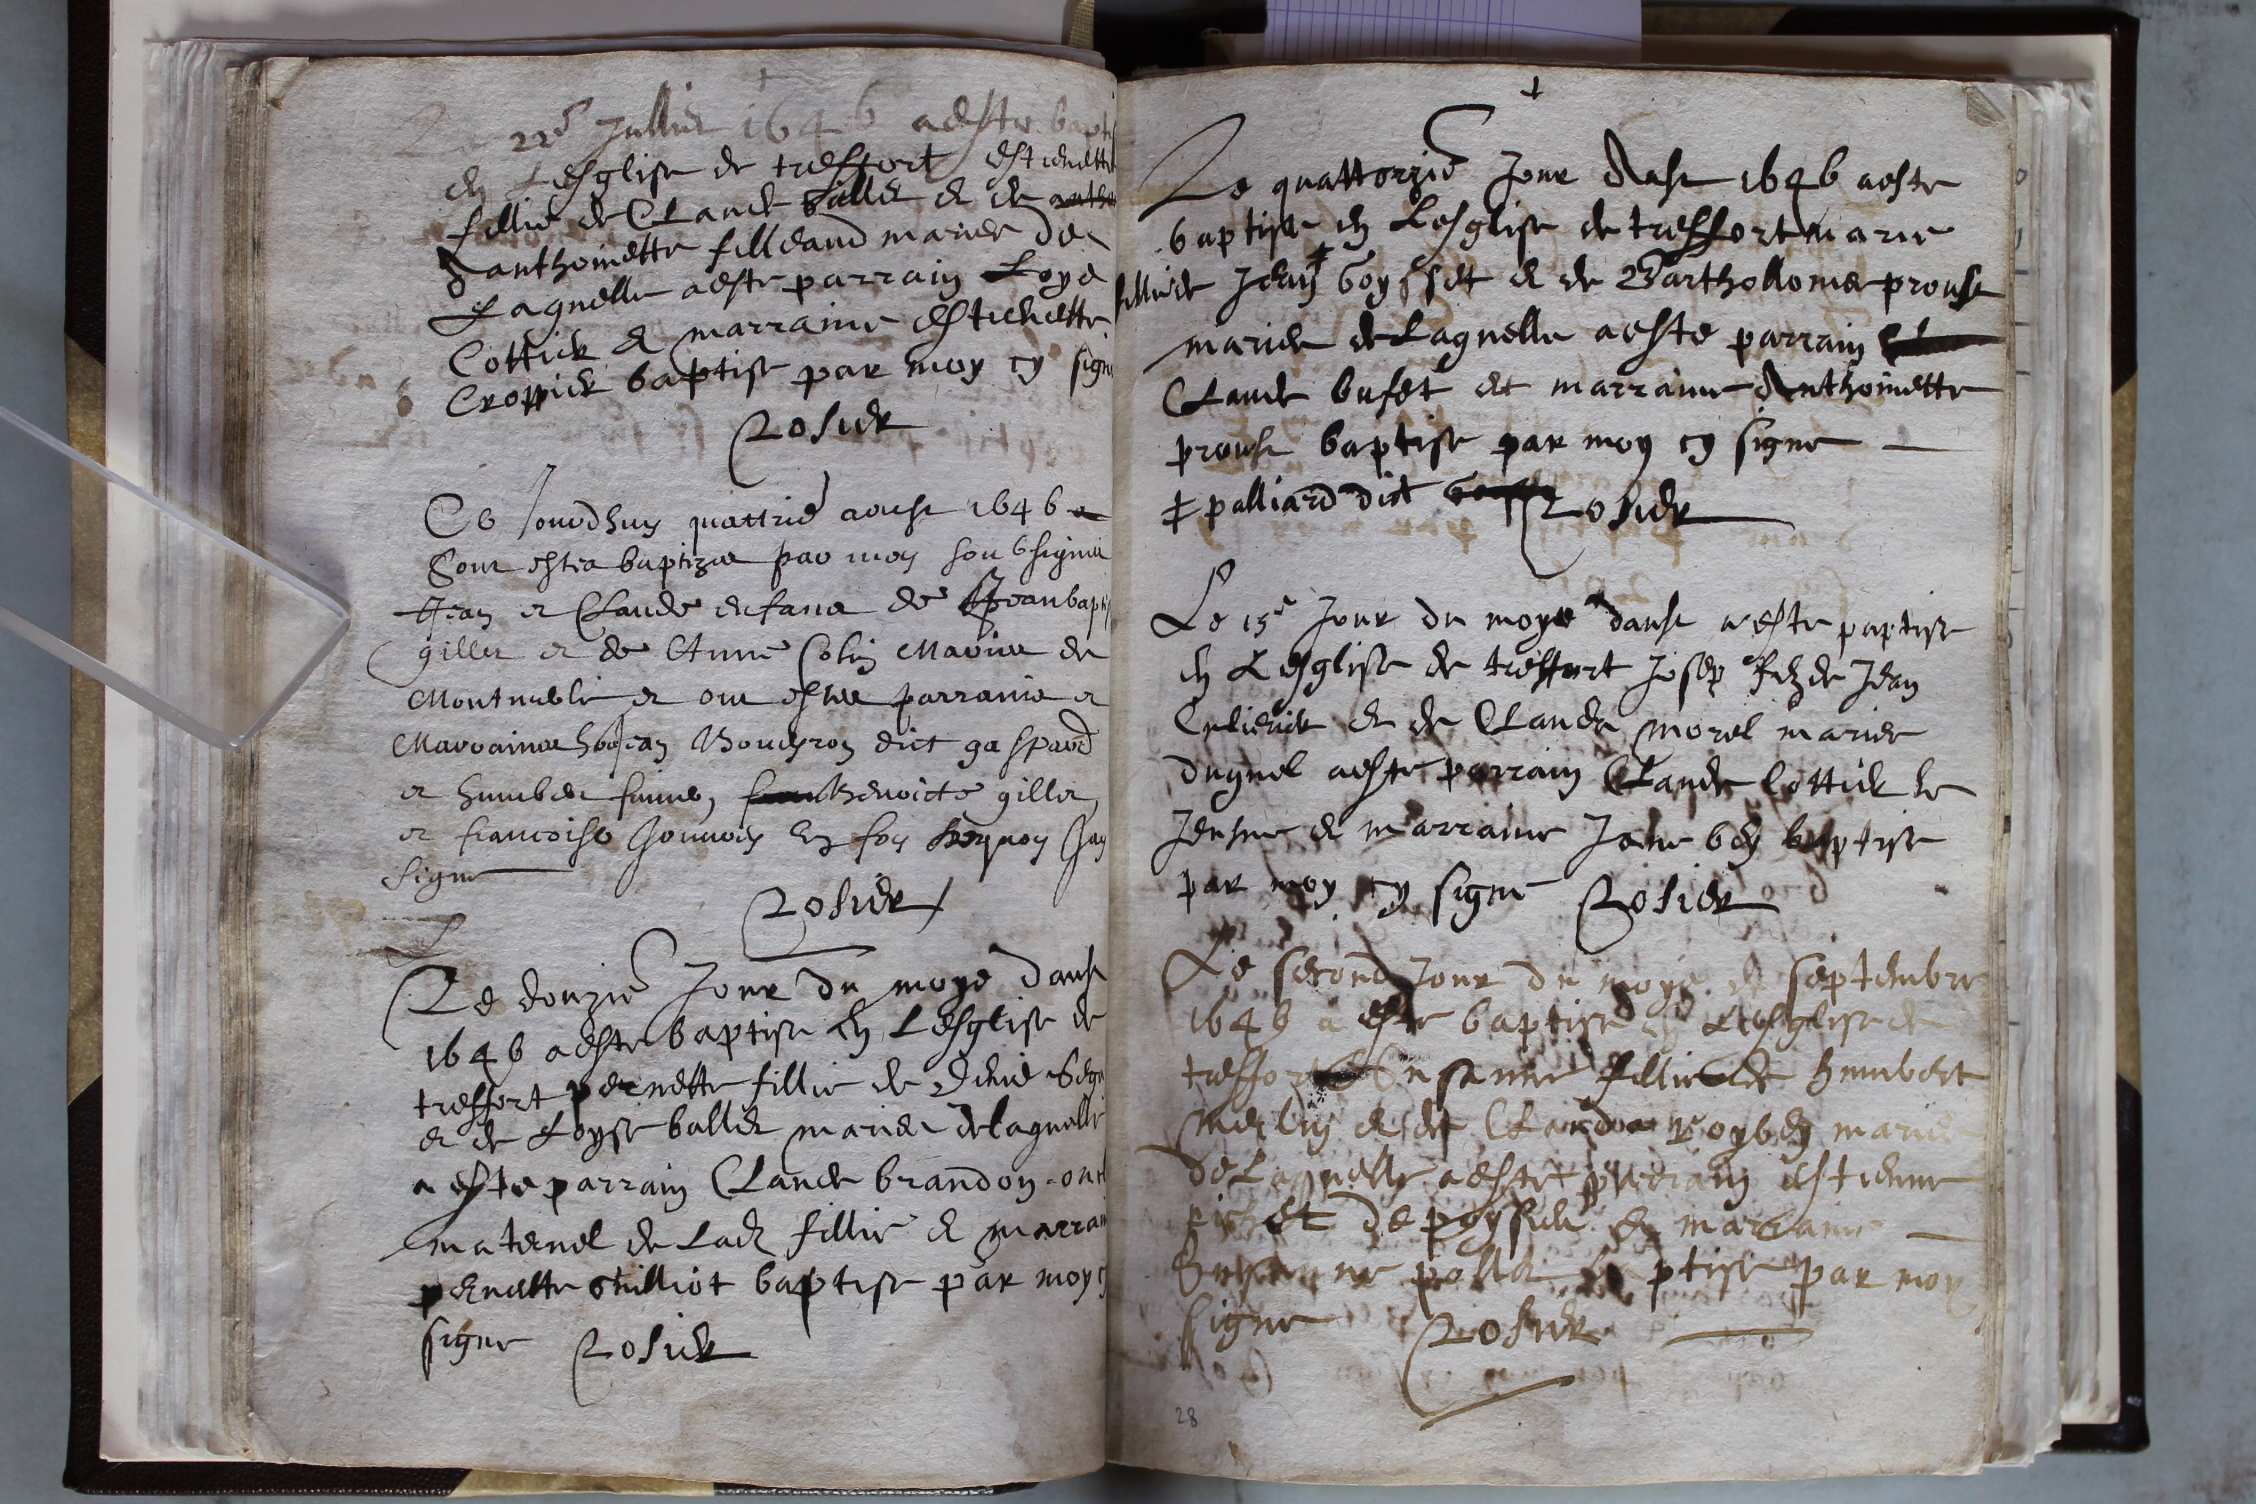 Le 22e Jullier 1646 a este bapt
en Lesglise de treffort estienette
fillie de Claude ballet & de
d anthoinette filleaud maries de
Laquelle a este parrain Loys
Cottier & marraine estienette
Croppier baptise par moy cy sign
Rosier
Ce Jourdhuy quattrie aoust 1646
Sont estes baptizes par moy soubsigne
Jean et Claude enfans de Jean bapt
gillet et de Anne Colin Maries de
et ont estes parrains et
Marraines Jean dict gaspard
et humbert benoicte gillet
et francoise en foy dequoy Jay
signe
Rosier
Le douzie Jour du moys daust
1646 a este baptise en Lesglise de
treffort pernette fillie de Denis
& de Loyse ballet maries de laquelle
a este parrain Claude brandon
maternel de Lad fillie & marrai
pernette baptise par moy cy
signe Rosier
Le quattorzie Jour daust 1646 a este
baptise en Lesglise de treffort marie
fillie de Jean ‡ goysset & de Bartholomie proust
maries de Laquelle a este parrain
Claude bufet et marraine Anthoinette
proust baptise par moy cy signe
‡ palliard dict Rosier
Le 15e Jour du moys daust a este paptise
en Lesglise de treffort Josep filz de Jean
& de Claude morel maries
duquel a este parrain Claude Cottier le
Jeusne & marraine Jane bey baptise
par moy cy signe Rosier
Le second Jour du moys de septembre
1646 a este baptise en Lesglise de
treffort Susanne fillie de humbert
merlin & de Clauda maries
de Laquelle a este parrain estienne
de & marraine
Susanne baptise par moy
signe Rosier
28